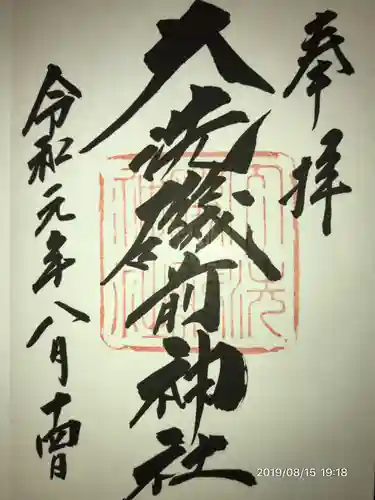 奉拝
大洗磯前神社
令和元年八月十四日
2019/08/15 19:18